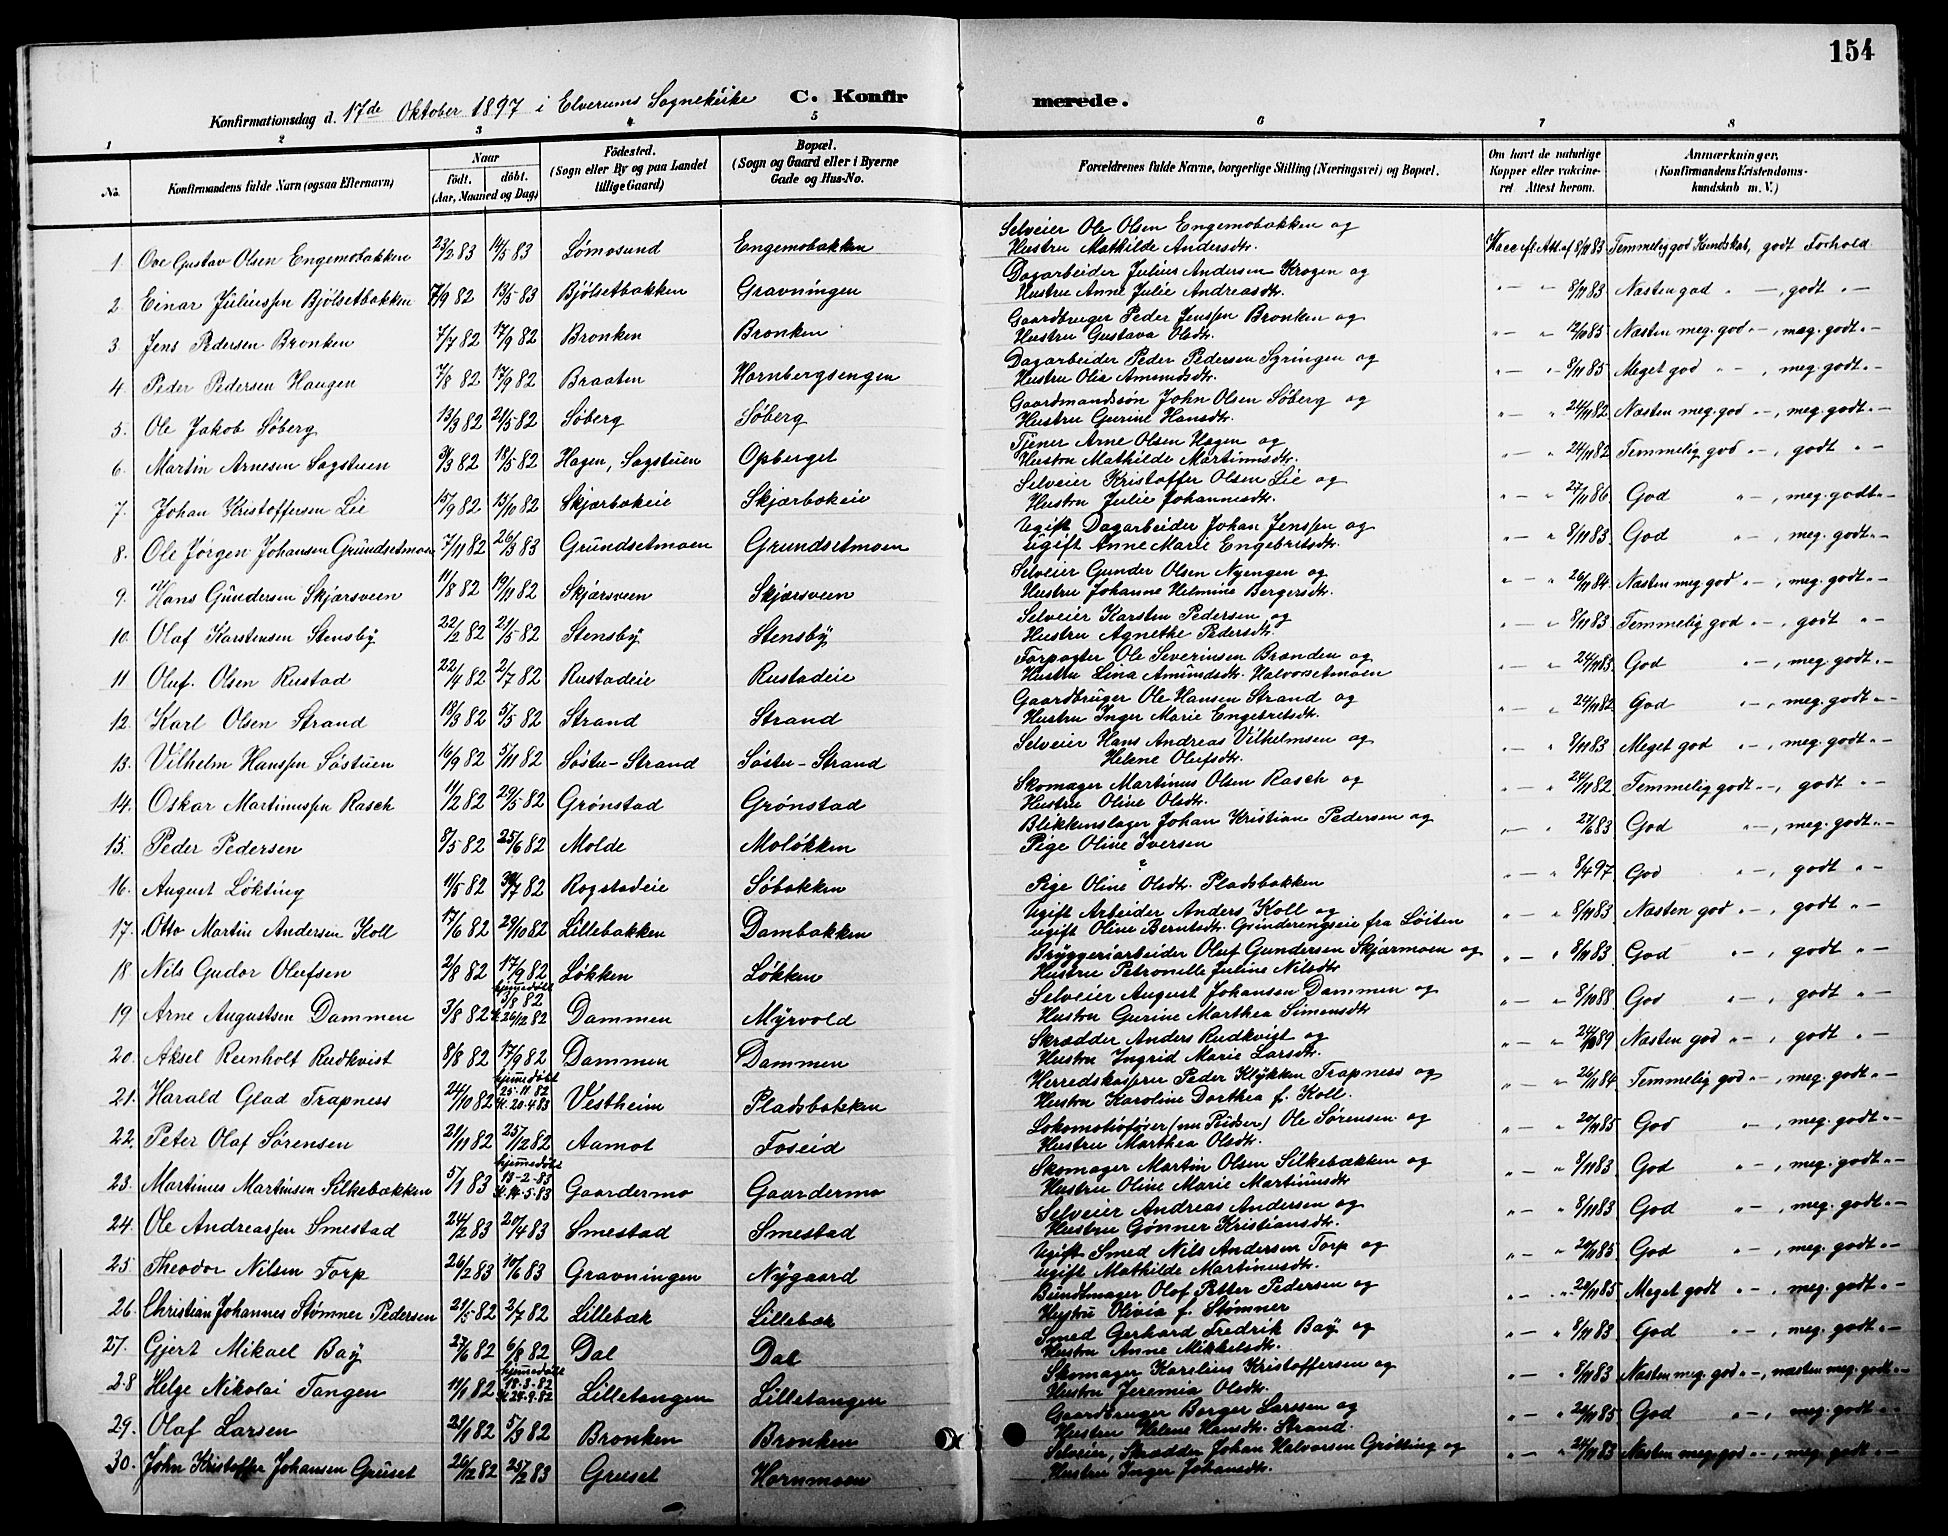 154
Konfirmationsdag d. 17de Oktober 1897 i Elverums Sognekirke C. Konfirmerede.
1 2 3 4 5 6 7 8
No. Konfirmandens fulde Navn (ogsaa Efternavn) Naar født, døbt. (Aar, Maaned og Dag) Fødested. (Sogn eller By og paa Landet tillige Gaard) Bopæl. (Sogn og Gaard eller i Byerne Gade og Hus-No.) Forældrenes fulde Navne, borgerlige Stilling (Næringsvei) og Bopæl. Om havt de naturlige Kopper eller vakcineret. Attest herom. Anmærkninger. (Konfirmandens Kristendomskundskab m. V.)
1. Ove Gustav Olsen Engemobakken 23/2 83 14/5 83 Lømosund Engemobakken Selveier Ole Olsen Engemobakken og Hustru Mathilde Andersdtr. Vacc. efl. Att. af 8/11 83 Temmelig god Kundskab, godt Forhold
2. Einar Juliussen Bjølsetbakken 7/9 82 13/5 83 Bjølsetbakken Gravningen Dagarbeider Julius Andersen Krogen og Hustru Anne Julie Andreasdtr. " — " 8/11 83 Næsten god " —, godt " —
3. Jens Pedersen Bronken 7/7 82 17/9 82 Bronken Bronken Gaardbruger Peder Jenssen Bronken og Hustru Gustava Olsdtr. " — " 12/10 85 Næsten meg. god " —, meg. godt " —
4. Peder Pedersen Haugen 7/8 82 17/9 82 Braaten Hornbergsengen Dagarbeider Peder Pedersen Syringen og Hustru Olia Amundsdtr. " — " 9/11 85 Meget god " —, meg. godt " —
5. Ole Jakob Søberg 13/3 82 21/5 82 Søberg Søberg Gaardmandssøn John Olsen Søberg og Hustru Gurine Hansdtr. " — " 24/11 82 Næsten meg. god " —, meg. godt " —
6. Martin Arnesen Sagstuen 31/3 82 18/5 82 Hagen, Sagstuen Opberget Tjener Arne Olsen Hagen og Hustru Mathilde Martinusdtr. " — " 24/11 82 Temmelig god " —, godt " —
7. Johan Kristoffersen Lie 15/9 82 15/10 82 Skjærbakeie Skjærbakeie Selveier Kristoffer Olsen Lie og Hustru Julie Johannesdtr. " — " 27/11 86 God " —, meg. godt " —
8. Ole Jørgen Johansen Grundsetmoen 7/11 82 26/3 83 Grundsetmoen Grundsetmoen Ugift Dagarbeider Johan Jenssen og ugift Anne Marie Engebritsdtr. " — " 8/11 83 God " —, meg. godt " —
9. Hans Gundersen Skjærsveen 11/8 82 19/11 82 Skjærsveen Skjærsveen Selveier Gunder Olsen Nyengen og Hustru Johanne Helmine Bergersdtr. " — " 26/11 84 Næsten meg. god " —, meg. godt " —
10. Olaf Karstensen Stensby 22/2 82 21/5 82 Stensby Stensby Selveier Karsten Pedersen og Hustru Agnethe Pedersdtr. " — " 8/11 83 Temmelig god " —, godt " —
11. Oluf Olsen Rustad 22/4 82 2/7 82 Rustadeie Rustadeie Forpagter Ole Severinsen Brænden og Hustru Lina Amundsdtr. Halvorsetmoen " — " 24/11 83 God " —, meg. godt " —
12. Karl Olsen Strand 18/3 82 5/5 82 Strand Strand Gaardbruger Ole Hansen Strand og Hustru Inger Marie Engebritsdtr. " — " 24/11 82 God " —, meg. godt " —
13. Vilhelm Hanssen Søstuen 16/9 82 5/11 82 Søstu-Strand Søstu-Strand Selveier Hans Andreas Vilhelmsen og Helene Olufsdtr. " — " 8/11 83 Meget god " —, meg. godt " —
14. Oskar Martinussen Rasch 11/2 82 29/5 82 Grønstad Grønstad Skomager Martinus Olsen Rasch og Hustru Oline Olsdtr. " — " 24/11 82 Temmelig godt " —, godt " —
15. Peder Pedersen 8/5 82 25/6 82 Molde Moløkken Blikkenslager Johan Kristian Pedersen og Pige Oline Iversen " — " 27/6 83 God " —, meg. godt " —
16. August Løkting 11/5 82 30/7 82 Rogstadeie Søbakken Pige Oline Olsdtr. Pladsbakken " — " 8/4 97 God " —, godt " —
17. Otto Martin Andersen Koll 17/6 82 29/10 82 Lillebakken Dambakken Ugift Arbeider Anders Koll og ugift Oline Berntsdtr. Grinderengseie fra Løiten " — " 8/11 83 Næsten god " —, godt " —
18 Nils Gudor Olufsen 2/8 82 17/9 82 Løkken Løkken Bryggeriarbeider Oluf Gundersen Skjærmoen og Hustru Petronille Juline Nilsdtr " — " 8/11 83 God " —, godt " —
19 Arne Augustsen Dammen 3/8 82 hjemmedøbt 3/8 82 26/12 82 Dammen Myrvold Selveier August Johansen Dammen og Hustru Gurine Marthea Simensdtr " — " 8/10 88 God " —, godt " —
20. Aksel Reinholt Rudkvist 8/8 82 17/9 82 Dammen Dammen Skrædder Anders Rudkvist og Hustru Ingrid Marie Larsdtr. " — " 24/10 89 Næsten god " —, godt " —
21. Harald Glad Trapness 24/10 82 hjemmedøbt 25-11 82 20-4 83 Vestheim Pladsbakken Herredskasserer Peder Klykken Trapness og Hustru Karoline Dorthea f. Koll. " — " 26/11 84 Temmelig god " —, meg. godt " —
22. Peter Olaf Sørensen 21/11 82 25/12 82 Aamot Foseid Lokomotivfører (nu Pudser) Ole Sørensen og Hustru Marthea Olsdtr. " — " 20/11 85 God " —, meg. godt " —
23. Martinus Martinsen Silkebækken 5/1 83 hjemmedøbt 13-2-83 14-5-83 Gaardermo Gaardermo Skomager Martin Olsen Silkebækken og Hustru Oline Marie Martinusdtr " — " 8/11 83 God " —, meg. godt " —
24. Ole Andreassen Smestad 24/2 83 20/4 83 Smestad Smestad Selveier Andreas Andersen og Hustru Gønner Kristiansdtr. " — " 8/11 83 God " —, meg. godt " —
25. Theodor Nilsen Torp 26/2 83 10/6 83 Gravningen Nygaard Ugift Smed Nils Andersen Torp og ugift Mathilde Martinusdtr. " — " 20/11 85 God " —, meg. godt " —
26. Christian Johannes Stømner Pedersen 21/5 82 2/7 82 Lillebæk Lillebæk Bundtmager Olof Petter Pedersen og Hustru Olivia f. Stømner " — " 20/11 85 Meget godt " —, meg. godt " —
27. Gjert Mikael Bay 27/6 82 6/8 82 Dal Dal Smed Gerhard Fredrik Bay og Hustru Anne Mikkelsdtr. " — " 8/11 83 God " —, meg. godt " —
28 Helge Nikolai Tangen 11/1 82 hjemmedøbt 19-3-82 24-9-82 Lilletangen Lilletangen Skomager Karelius Kristoffersen og Hustru Jeremia Olsdtr. " — " 8/11 83 Næsten meg. god " —, næsten meg. godt " —
29. Olaf Larsen 21/1 82 5/3 82 Bronken Bronken Gaardbruger Berger Larssen og Hustru Helene Hansdtr. Strand. " — " 24/11 85 God " —, meg. godt " —
30. John Kristoffer Johansen Gruset 26/12 82 25/2 83 Gruset Hornmoen Selveier, Skrædder Johan Halvorsen Grøtting og Hustru Inger Johansdtr. " — " 24/11 83 Næsten meg. god " —, meg. godt " —